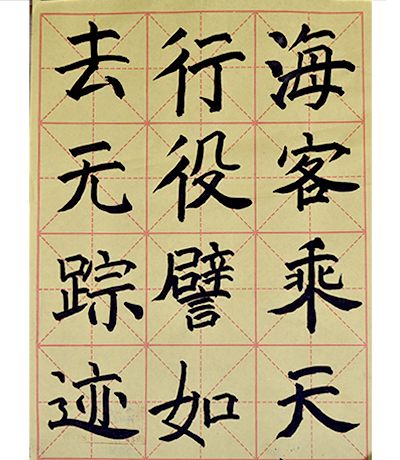 海客乘天
行役譬如
去无踪迹